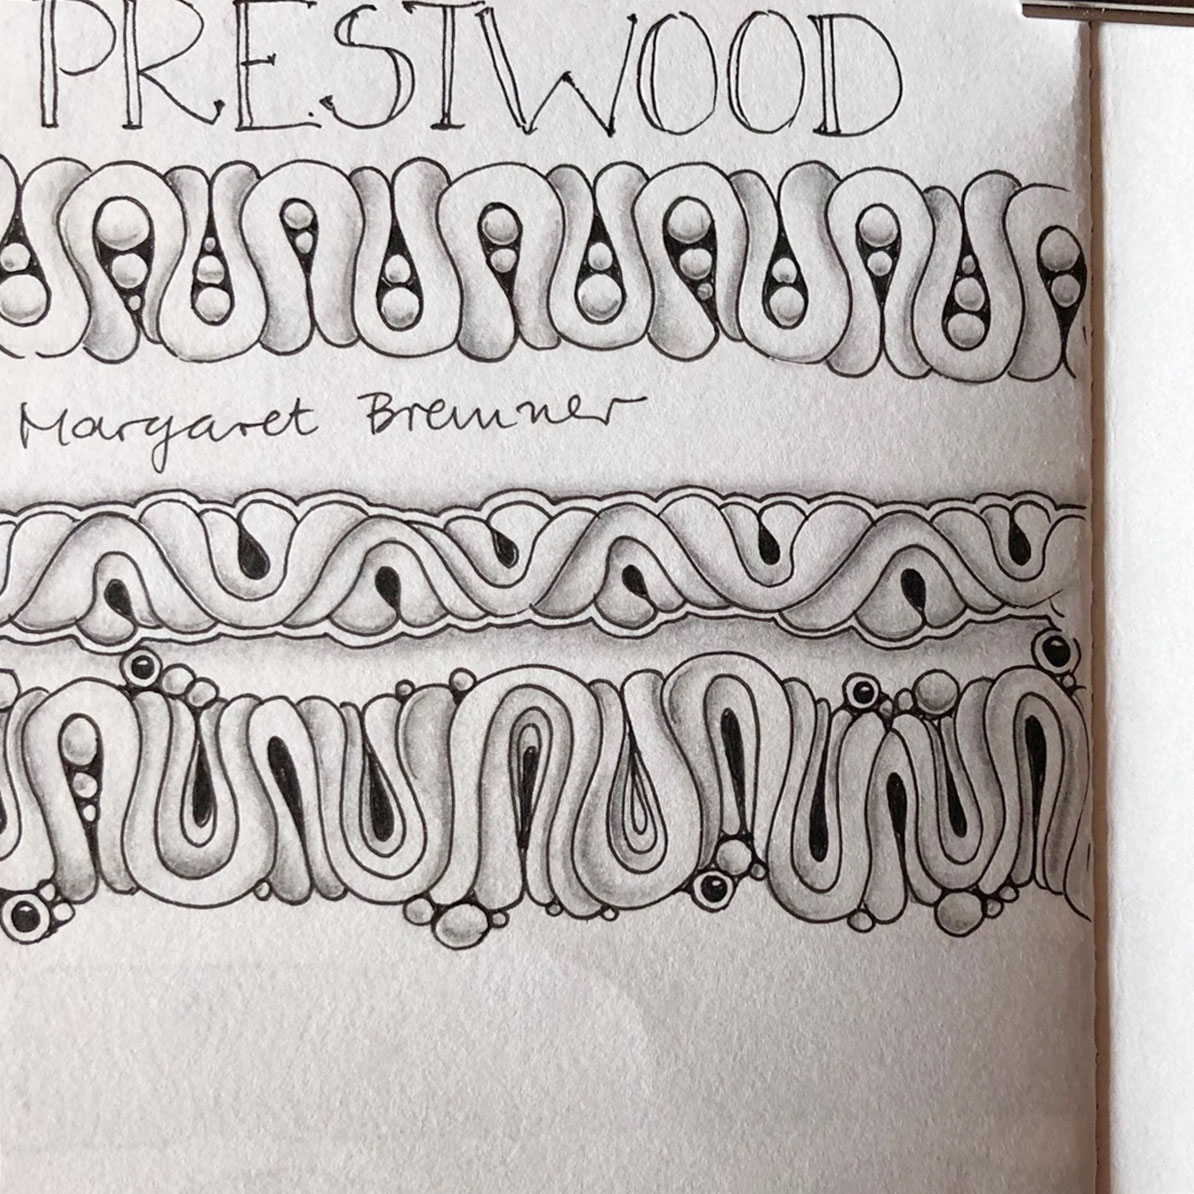 PRESTWOOD
Margaret Bremner